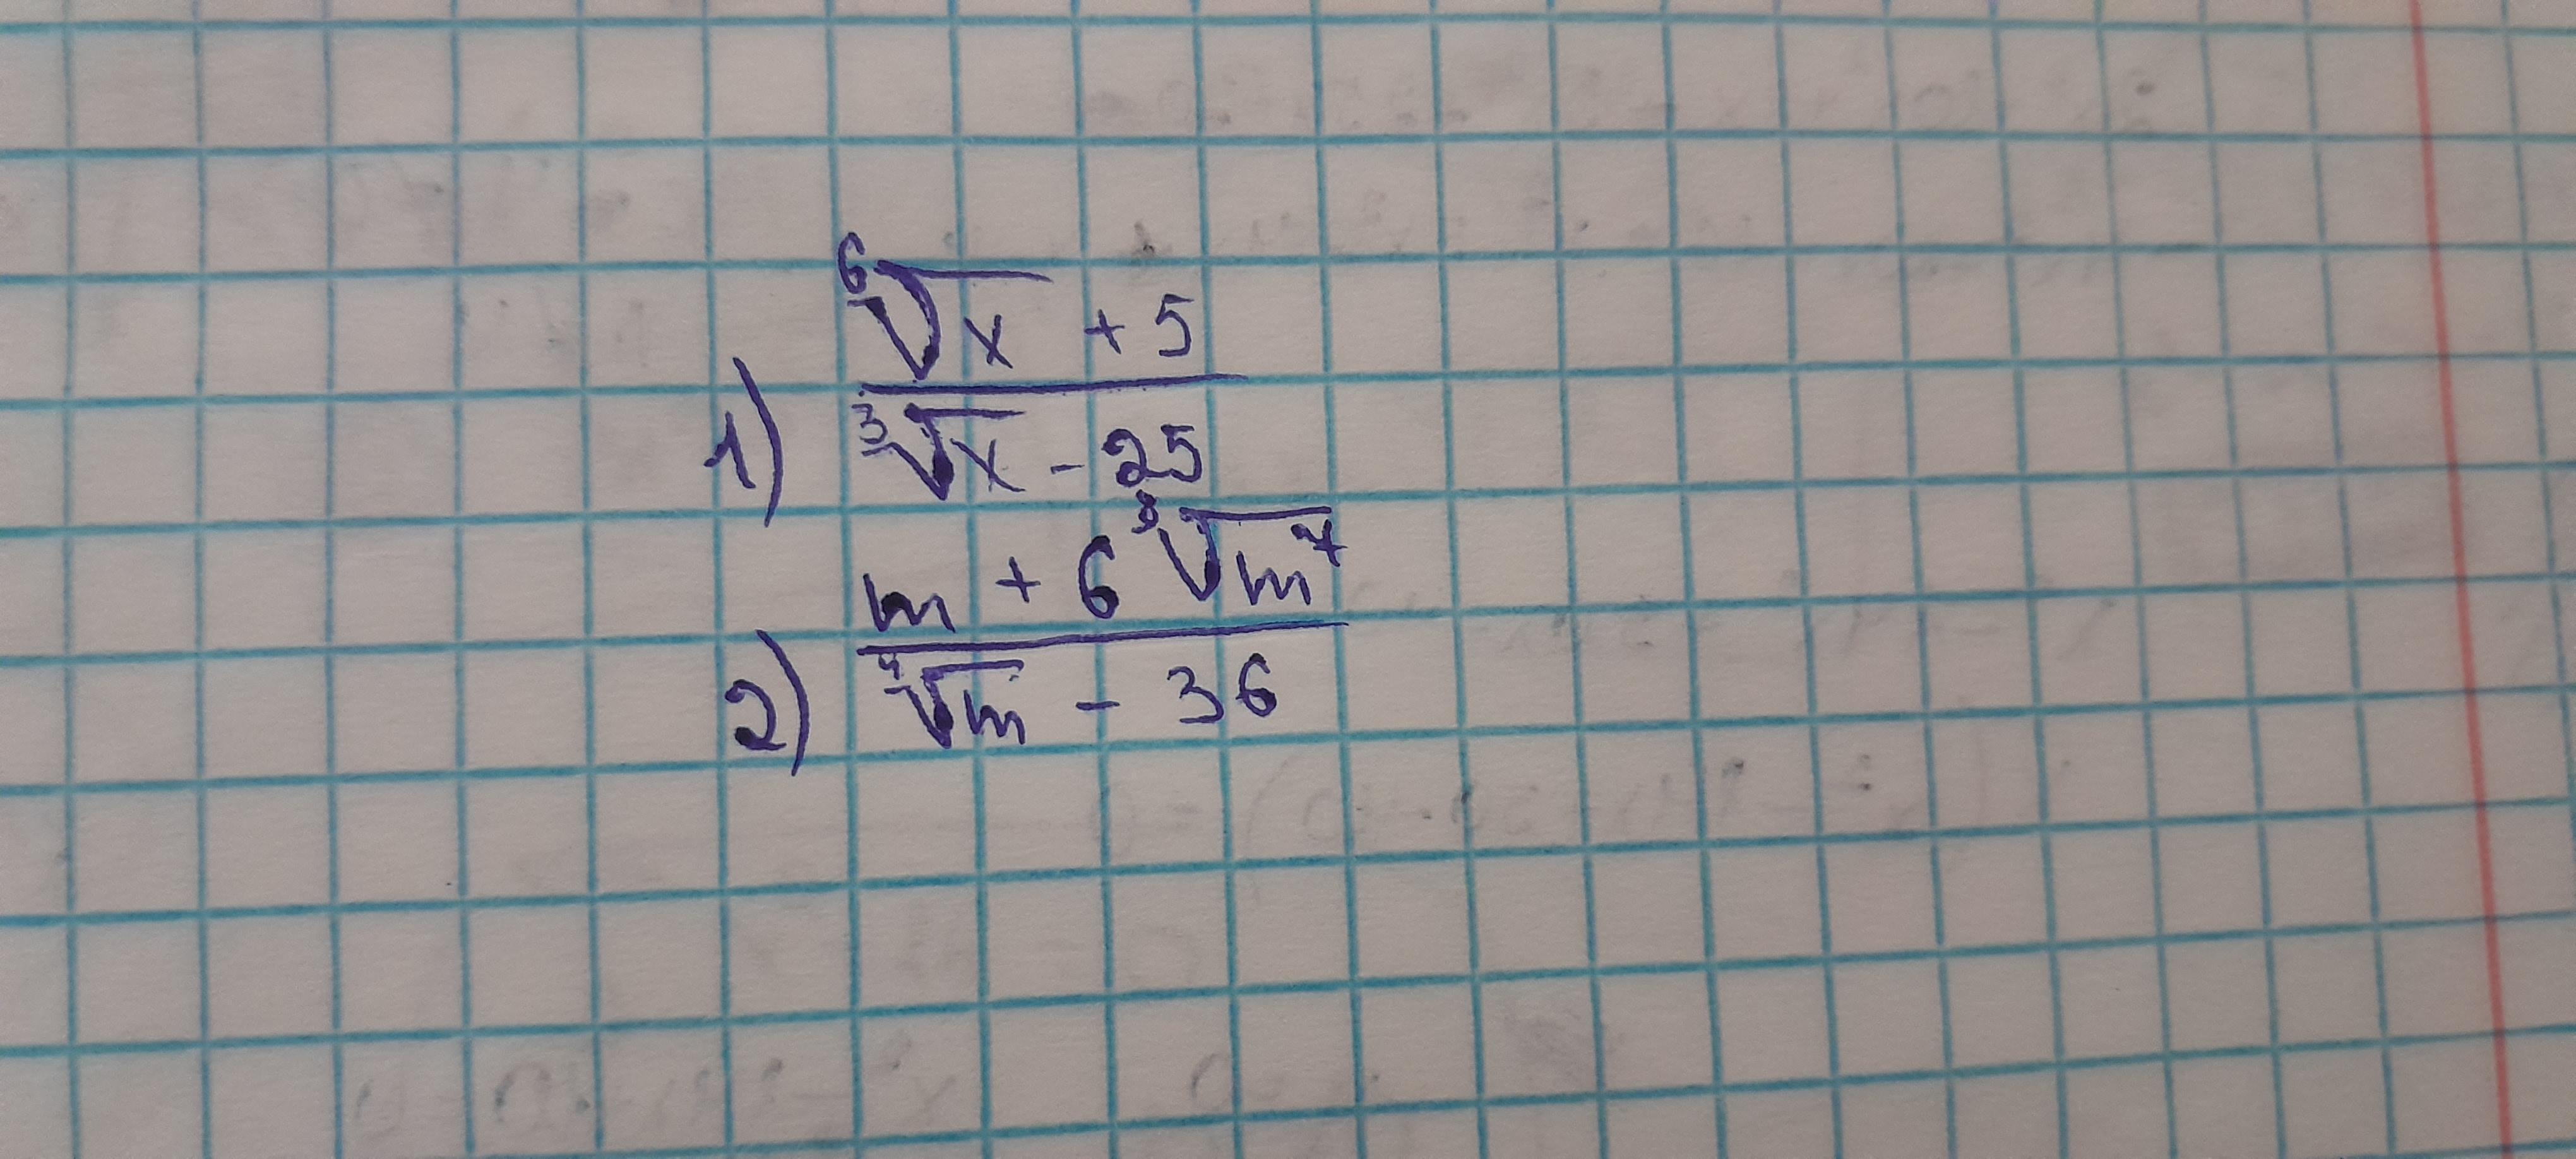 1) (⁶√x + 5) / (³√x - 25)
2) (m + 6 ³√m⁷) / (⁴√m - 36)